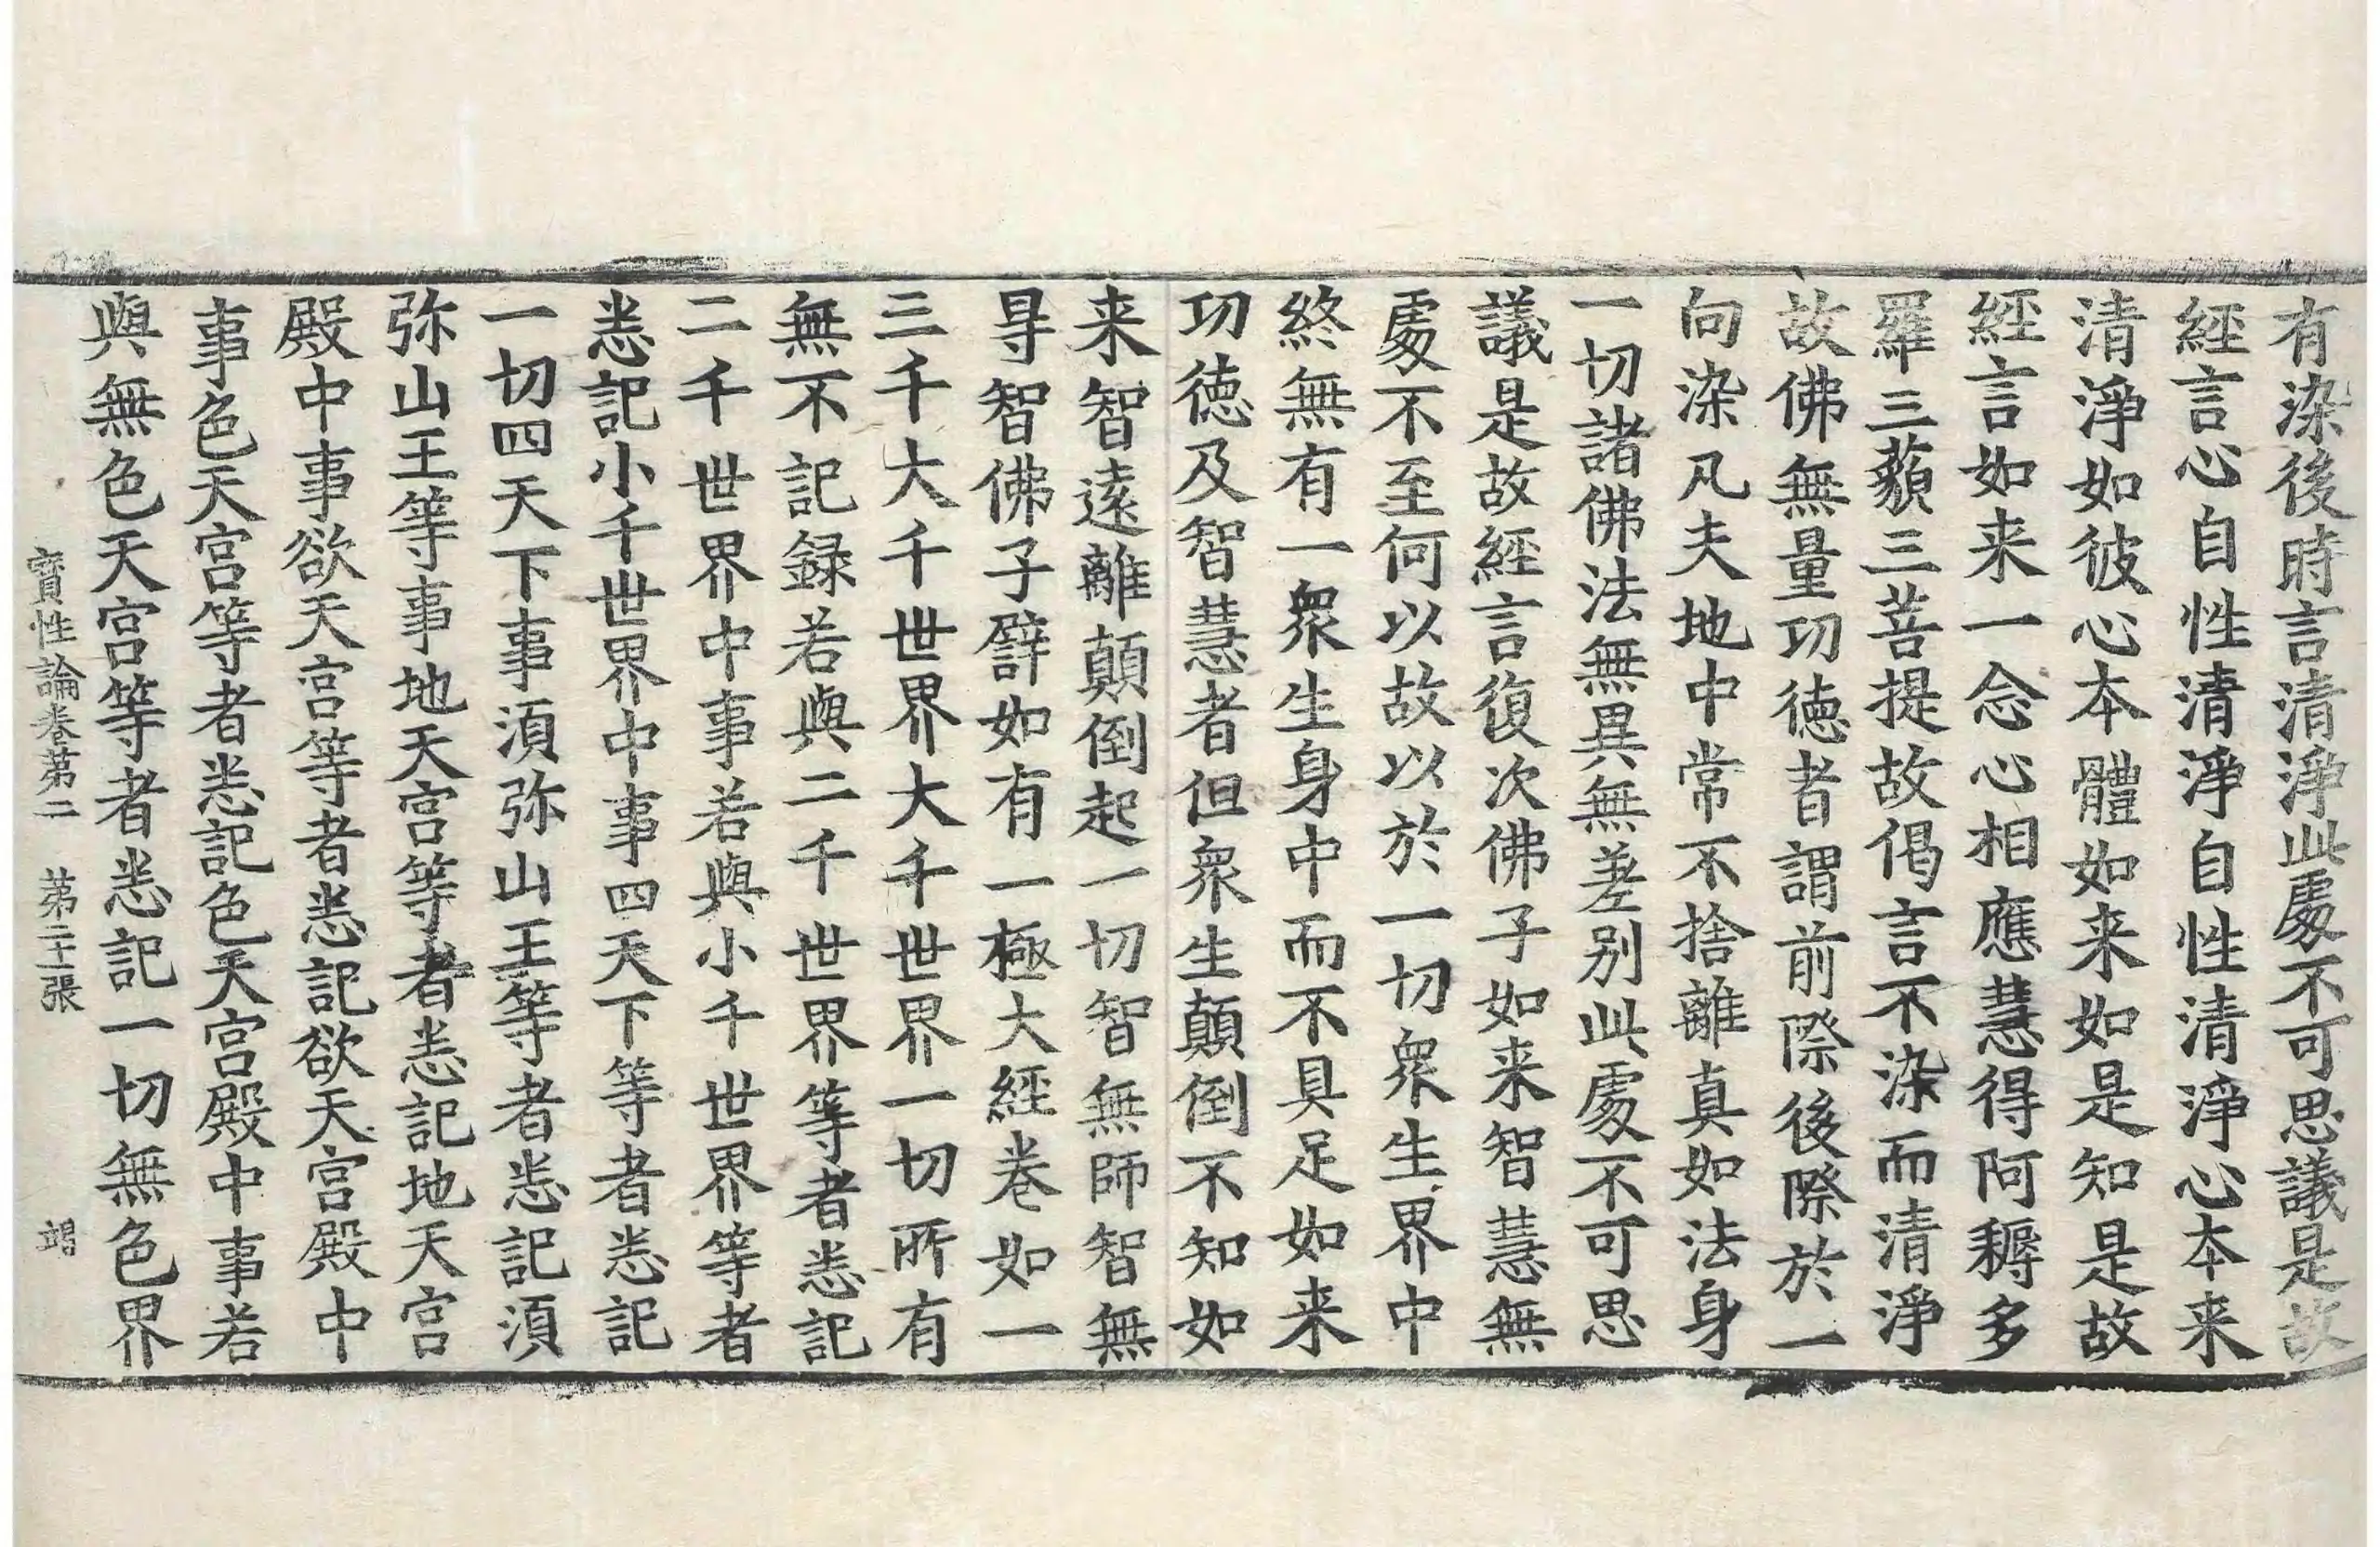 有染後時言清淨此處不可思議是故
經言心自性清淨自性清淨心本来
清淨如彼心本體如来如是知是故
經言如来一念心相應慧得阿耨多
羅三藐三菩提故偈言不染而清淨
故佛無量功徳者謂前際後際於一
向染凡夫地中常不捨離真如法身
一切諸佛法無異無差别此處不可思
議是故經言復次佛子如来智慧無
處不至何以故以於一切衆生界中
終無有一衆生身中而不具足如来
功徳及智慧者但衆生顛倒不知如
来智遠離顛倒起一切智無師智無
㝵智佛子譬如有一極大經卷如一
三千大千世界大千世界一切所有
無不記録若與二千世界等者悉記
二千世界中事若與小千世界等者
悉記小千世界中事四天下等者悉記
一切四天下事須弥山王等者悉記須
弥山王等事地天宮等者悉記地天宮
殿中事欲天宮等者悉記欲天宮殿中
事色天宮等者悉記色天宮殿中事若
與無色天宮等者悉記一切無色界
寶性論卷第二 第二十張 竭